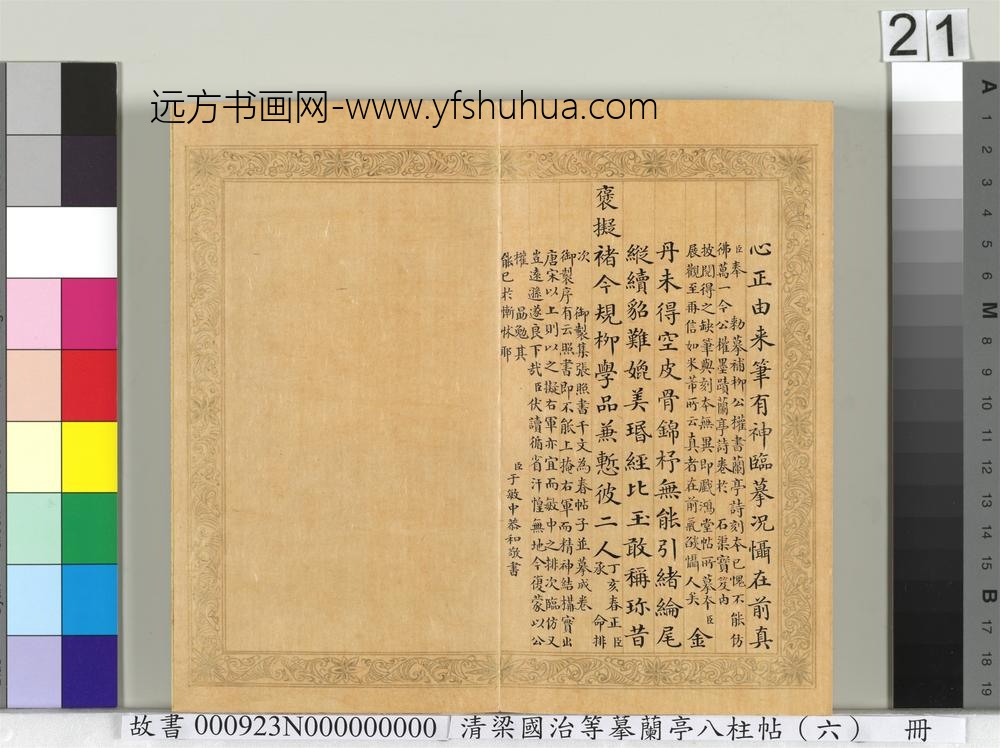 21
远方书画网-www.yfshuhua.com
心正由来筆有神臨摹况懾在前真
臣奉 勅摹補柳公權書蘭亭詩刻本已愧不能仿
彿萬一今公權墨蹟蘭亭詩卷於 石渠寶笈内
披閲得之缺筆與刻本無異即戲鴻堂帖所摹本臣
展觀至再信如米芾所云真者在前氣燄懾人矣 金
丹未得空皮骨錦杼無能引緒綸尾
縱續貂難媲美瑉經比玉敢稱珎昔
褒擬褚今規柳學品兼慙彼二人
丁亥春正臣
承 命排
次 御製集張照書千文為春帖子並摹成卷
御製序有云照書即不能上掩右軍而精神結搆實出
唐宋以上則以之擬右軍亦宜而敏中之排次臨仿又
豈遠遜遂良下哉臣伏讀循省汗惶無地今復蒙以公
權 品勉其
能已於慚怵耶
臣于敏中恭和敬書
A
1
2
3
4
5
6
M
8
9
10
11
12
13
14
15
B
17
18
19
故書 000923N000000000 清梁國治等摹蘭亭八柱帖（六） 冊